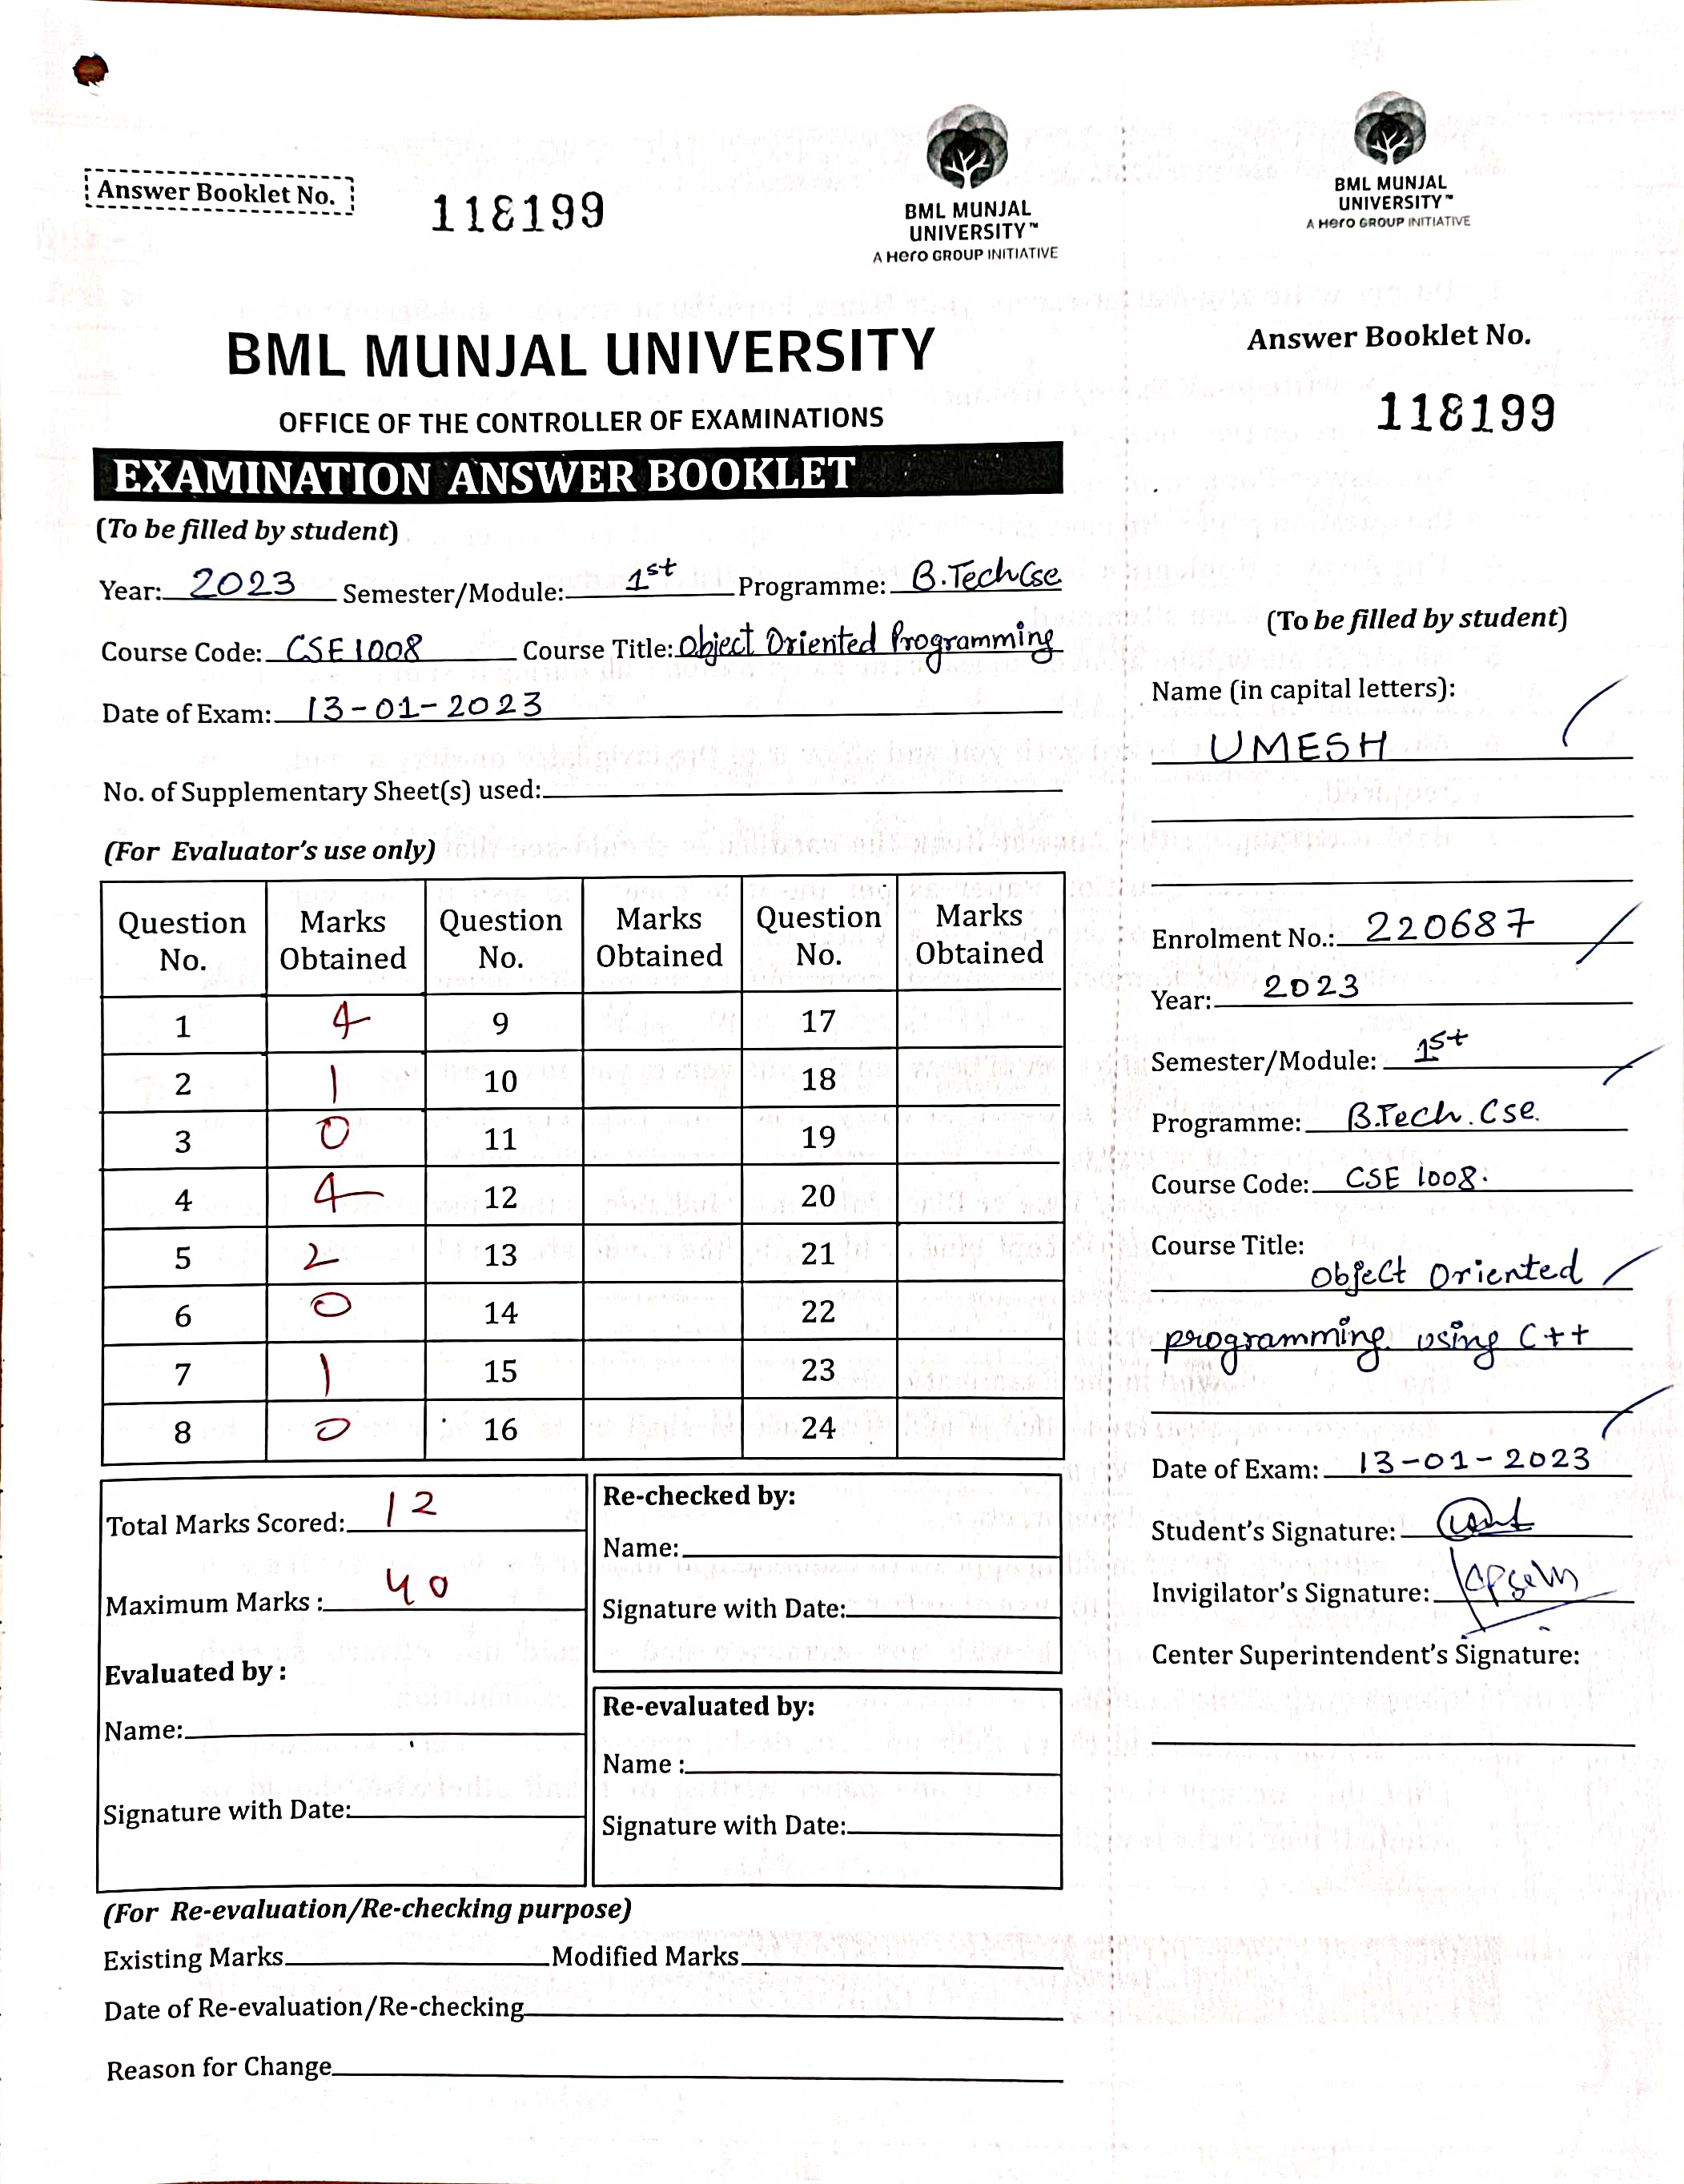 BML MUNJAL
UNIVERSITY™
A Hero GROUP INITIATIVE
Answer Booklet No.
118199
BML MUNJAL UNIVERSITY
OFFICE OF THE CONTROLLER OF EXAMINATIONS
EXAMINATION ANSWER BOOKLET
(To be filled by student)
Year: 2023 Semester/Module: 1st Programme: B.Tech Cse
Course Code: CSE1008 Course Title: Object Oriented Programming
Date of Exam: 13-01-2023
No. of Supplementary Sheet(s) used:
(For Evaluator's use only)
Question No. Marks Obtained Question No. Marks Obtained Question No. Marks Obtained
1 4 9 17
2 1 10 18
3 0 11 19
4 4 12 20
5 2 13 21
6 0 14 22
7 1 15 23
8 0 16 24
Total Marks Scored: 12
Maximum Marks : 40
Evaluated by :
Name:
Signature with Date:
Re-checked by:
Name:
Signature with Date:
Re-evaluated by:
Name :
Signature with Date:
(For Re-evaluation/Re-checking purpose)
Existing Marks Modified Marks
Date of Re-evaluation/Re-checking
Reason for Change
BML MUNJAL
UNIVERSITY™
A Hero GROUP INITIATIVE
Answer Booklet No.
118199
(To be filled by student)
Name (in capital letters):
UMESH
Enrolment No.: 220687
Year: 2023
Semester/Module: 1st
Programme: B.Tech. Cse.
Course Code: CSE 1008.
Course Title:
Object Oriented
programming using C++
Date of Exam: 13-01-2023
Student's Signature:
Invigilator's Signature:
Center Superintendent's Signature: